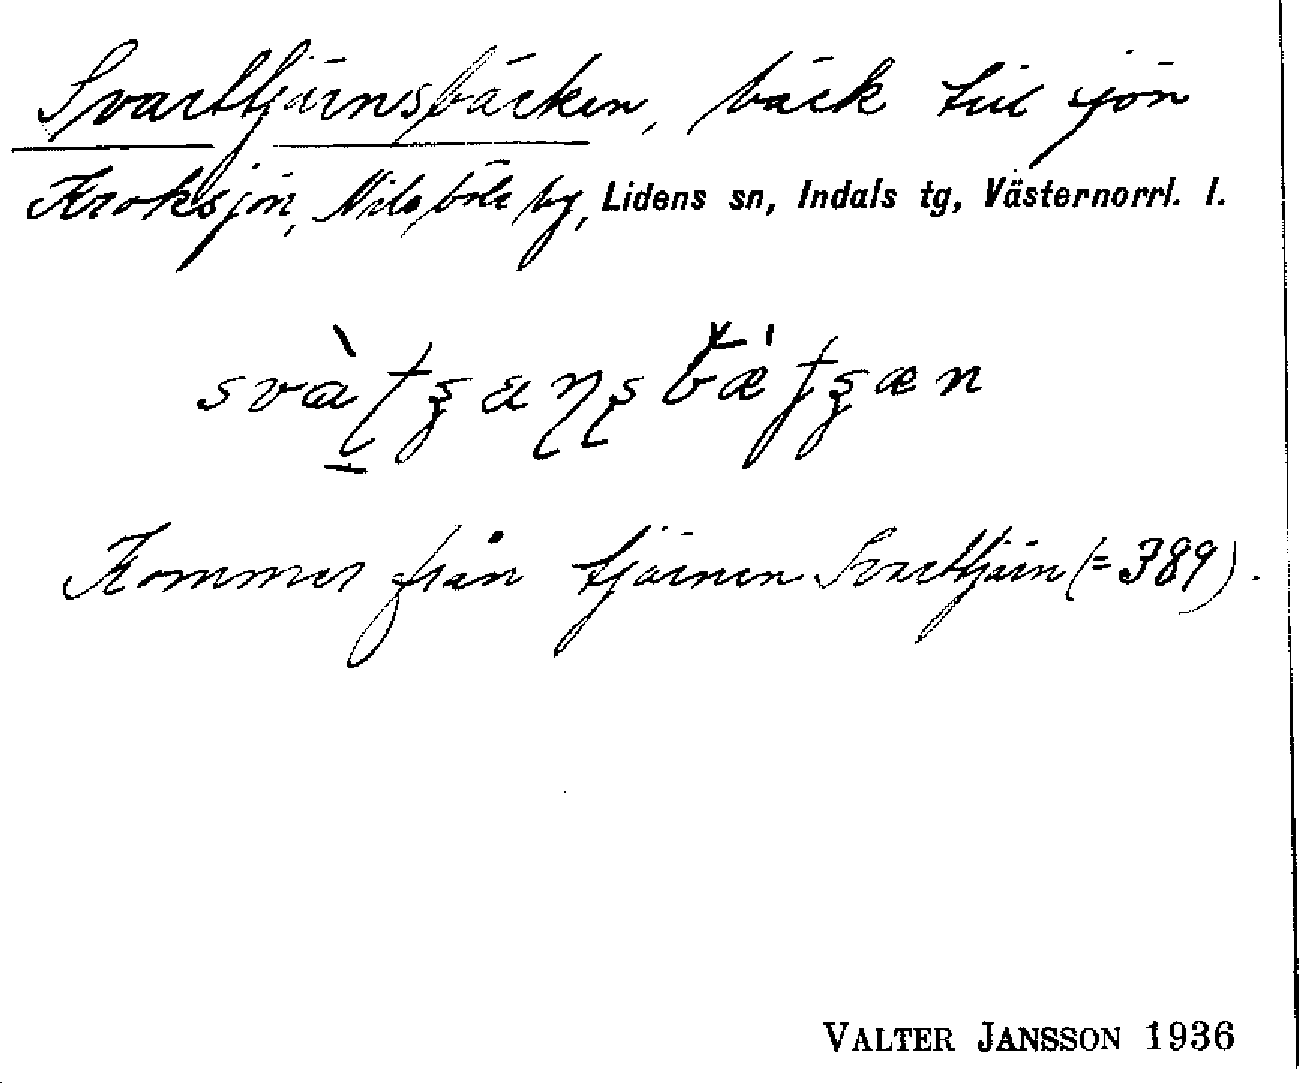 Svarttjärnsbäcken, bäck till sjön
Kroksjön, Nilsböle by, Lidens sn, Indals tg, Västernorrl. l.
Kommer från tjärnen Svarttjärn (= 389).
VALTER JANSSON 1936